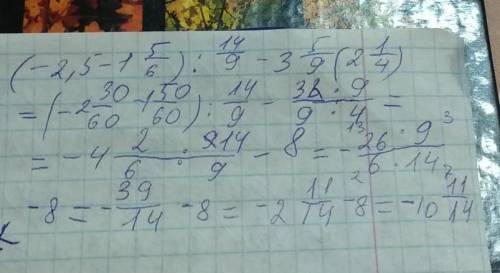 (-2,5-1 5/6) : 14/9 - 3 5/9 (2 1/4)
= (-2 30/60 - 1 50/60) : 14/9 - (32 · 9)/(9 · 4) =
= -4 2/6 : 14/9 - 8 = - (26 13 · 9 3)/(6 2 · 14 7)
-8 = - 39/14 - 8 = -2 11/14 - 8 = -10 11/14